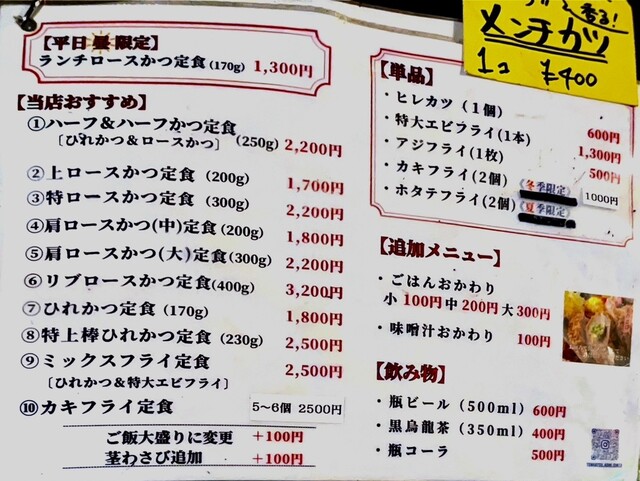 香る!
メンチカツ
1コ ¥400
【平日 昼 限定】
ランチロースかつ定食(170g) 1,300円
【当店おすすめ】
①ハーフ&ハーフかつ定食
〔ひれかつ&ロースかつ〕 (250g) 2,200円
②上ロースかつ定食 (200g) 1,700円
③特ロースかつ定食 (300g) 2,200円
④肩ロースかつ(中)定食(200g) 1,800円
⑤肩ロースかつ(大)定食(300g) 2,200円
⑥リブロースかつ定食(400g) 3,200円
⑦ひれかつ定食 (170g) 1,800円
⑧特上棒ひれかつ定食 (230g) 2,500円
⑨ミックスフライ定食 2,500円
〔ひれかつ&特大エビフライ〕
⑩カキフライ定食 5~6個 2500円
ご飯大盛りに変更 +100円
茎わさび追加 +100円
【単品】
・ヒレカツ(1個) 600円
・特大エビフライ(1本) 1,300円
・アジフライ(1枚) 500円
・カキフライ(2個) 《冬季限定》 1000円
・ホタテフライ(2個) 《夏季限定》
【追加メニュー】
・ごはんおかわり
小 100円 中 200円 大 300円
・味噌汁おかわり 100円
【飲み物】
・瓶ビール(500ml) 600円
・黒烏龍茶(350ml) 400円
・瓶コーラ 500円